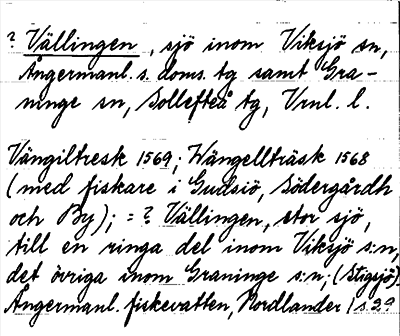 ? Vällingen, sjö inom Viksjö sn,
Ångermanl. s. doms. tg samt Gra-
ninge sn, Sollefteå tg, Vrnl. l.
Vängiltresk 1569; Wängellträsk 1568
(med fiskare i Gudsiö, Södergårdh
och By); = ? Vällingen, stor sjö,
till en ringa del inom Viksjö s:n,
det övriga inom Graninge s:n; (Stigsjö).
Ångermanl. fiskevatten, Nordlander 1 s.